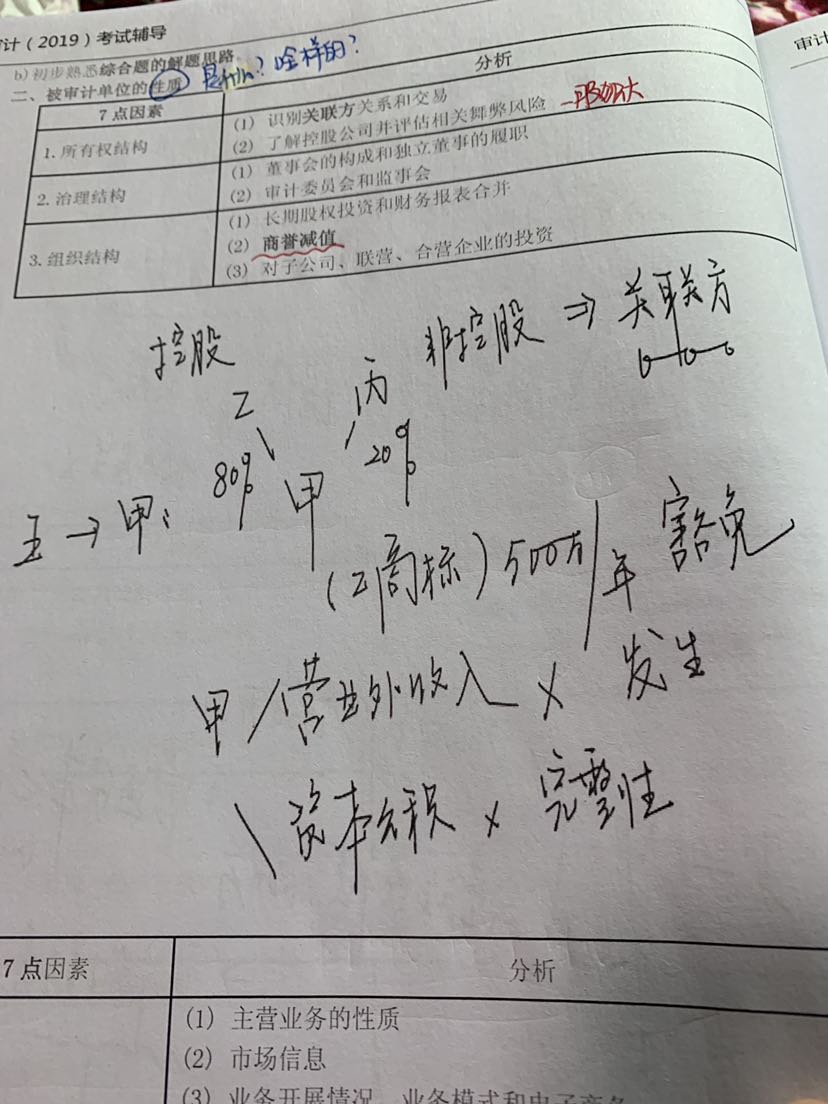 审计（2019）考试辅导
审计
b) 初步熟悉综合题的解题思路
二、被审计单位的性质 是什么？啥样的？
7点因素 分析
1. 所有权结构
(1) 识别关联方关系和交易
(2) 了解控股公司并评估相关舞弊风险
2. 治理结构
(1) 董事会的构成和独立董事的履职
(2) 审计委员会和监事会
3. 组织结构
(1) 长期股权投资和财务报表合并
(2) 商誉减值
(3) 对子公司、联营、合营企业的投资
控股 非控股 ⇒ 关联方
乙 丙
80% 20%
→ 甲： 甲
(乙商标) 500万/年 豁免
甲 / 营业外收入 × 发生
\ 资本公积 × 完整性
7点因素 分析
(1) 主营业务的性质
(2) 市场信息
(3) 业务开展情况、业务模式和电子商务